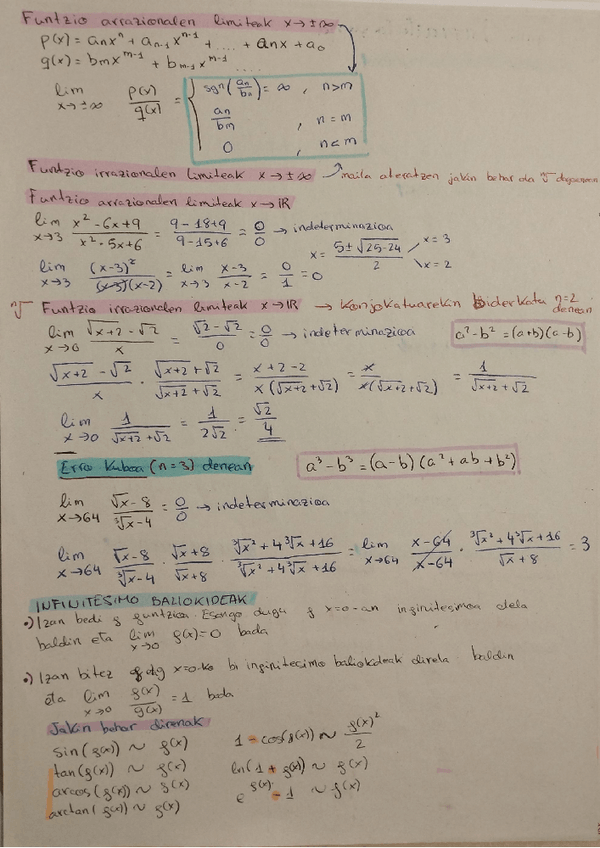 Funtzio arrazionalen limiteak x→±∞
p(x) = aₙxⁿ + aₙ₋₁xⁿ⁻¹ + .... + aₙx + a₀
q(x) = bₘxᵐ⁻¹ + bₘ₋₁xᵐ⁻¹ ....
lim x→±∞ p(x)/q(x) = { sgn(aₙ/bₙ) = ∞ , n>m
aₙ/bₘ , n = m
0 , n<m
Funtzio irrazionalen limiteak x→±∞ → maila ateratzen jakin behar da
Funtzio arrazionalen limiteak x→ℝ
lim x→3 (x² - 6x + 9)/(x² - 5x + 6) = (9 - 18 + 9)/(9 - 15 + 6) = 0/0 → indeterminazioa x = (5 ± √(25-24))/2 x = 3 x = 2
lim x→3 (x-3)²/((x-3)(x-2)) = lim x→3 (x-3)/(x-2) = 0/1 = 0
ⁿ√ Funtzio irrazionalen limiteak x→ℝ → Konjokatuarekin biderkatu n=2 denean
lim x→0 (√(x+2) - √2)/x = (√2 - √2)/0 = 0/0 → indeterminazioa a² - b² = (a+b)(a-b)
(√(x+2) - √2)/x · (√(x+2) + √2)/(√(x+2) + √2) = (x + 2 - 2)/(x(√(x+2) + √2)) = x/(x(√(x+2) + √2)) = 1/(√(x+2) + √2)
lim x→0 1/(√(x+2) + √2) = 1/(2√2) = √2/4
Erro kuboa (n=3) denean a³ - b³ = (a-b)(a² + ab + b²)
lim x→64 (√x - 8)/(³√x - 4) = 0/0 → indeterminazioa
lim x→64 (√x - 8)/(³√x - 4) · (√x + 8)/(√x + 8) · (³√x² + 4³√x + 16)/(³√x² + 4³√x + 16) = lim x→64 (x-64)/(x-64) · (³√x² + 4³√x + 16)/(√x + 8) = 3
INFINITESIMO BALIOKIDEAK
•) Izan bedi f funtzioa. Esango dugu f x=0-an infinitesimoa dela
baldin eta lim x→0 f(x) = 0 bada
•) Izan bitez f x=0-ko bi infinitecimo baliokdeak direla baldin
eta lim x→0 f(x)/g(x) = 1 bada
Jakin behar direnak
sin(f(x)) ~ f(x) 1 - cos(f(x)) ~ f(x)²/2
tan(f(x)) ~ f(x) ln(1 + f(x)) ~ f(x)
arccos(f(x)) ~ f(x) e^f(x) - 1 ~ f(x)
arctan(f(x)) ~ f(x)